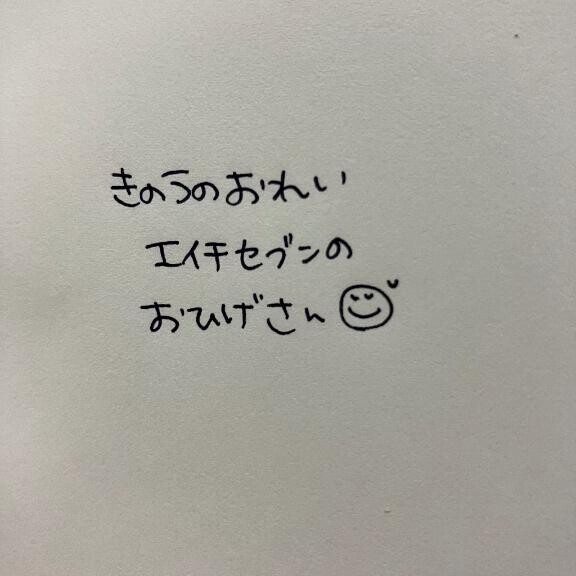 きのうのおれい
エイチセブンの
おひげさん